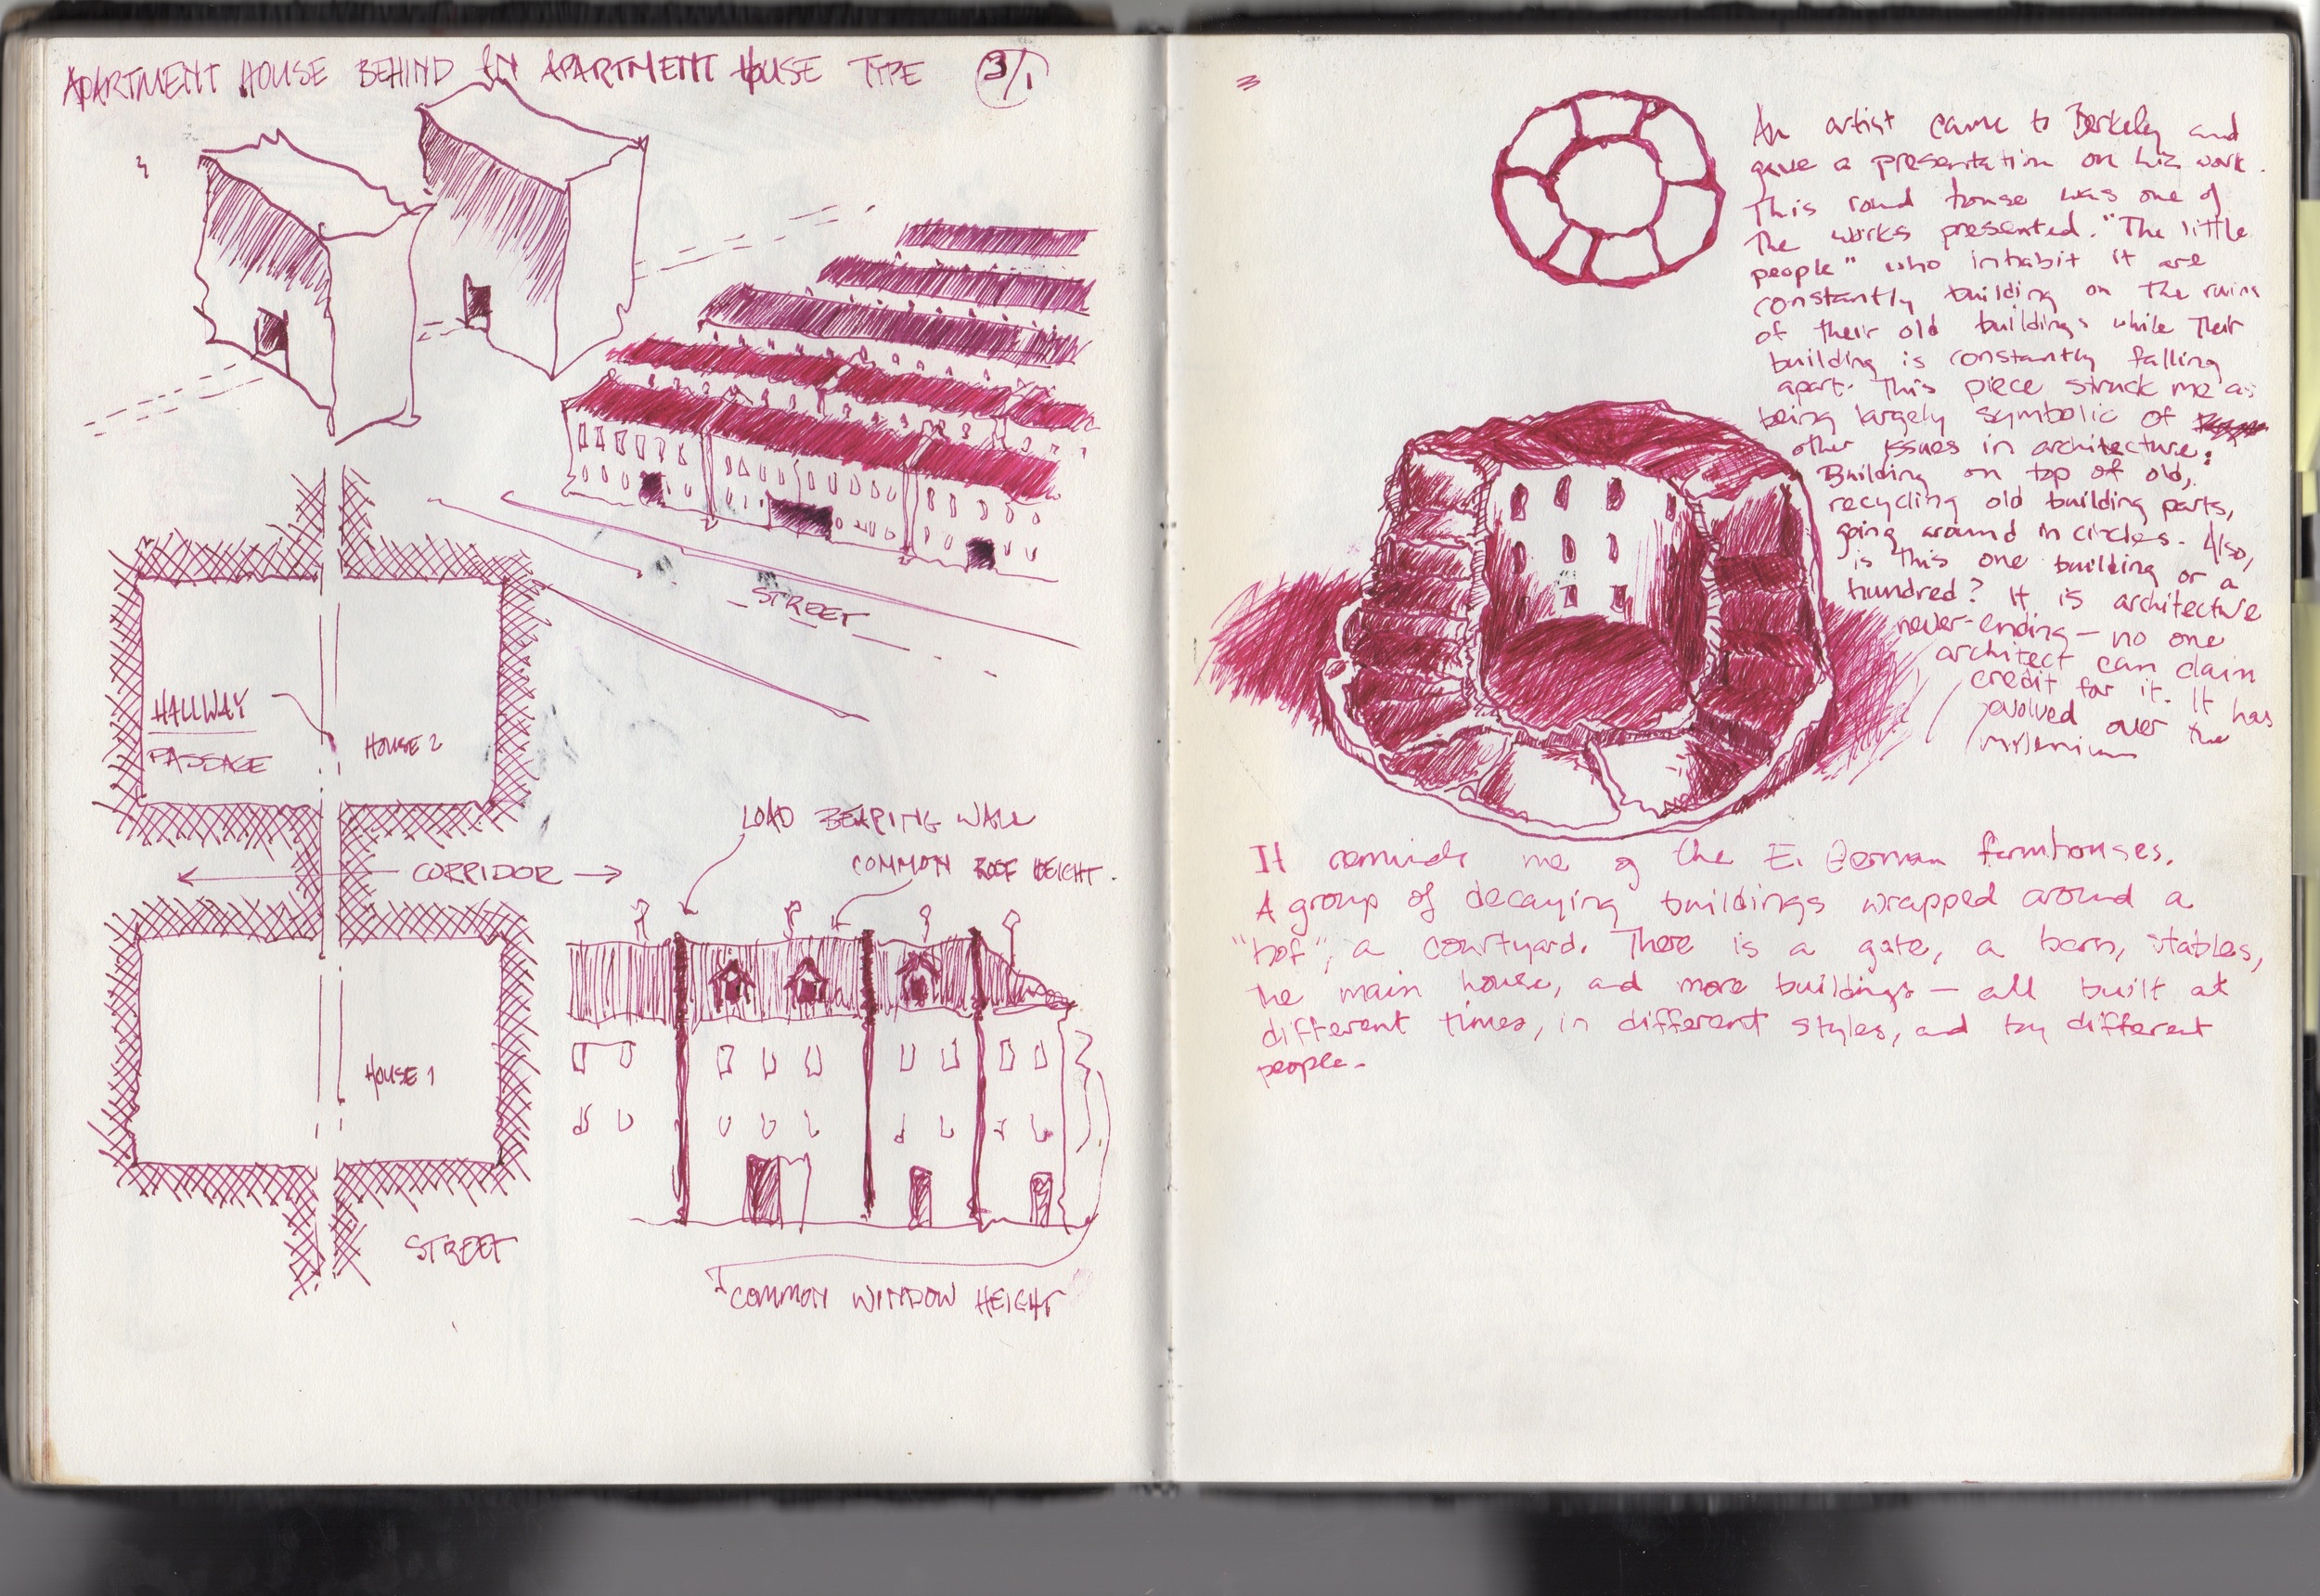 APARTMENT HOUSE BEHIND AN APARTMENT HOUSE TYPE 3/1
STREET
HALLWAY
PASSAGE
HOUSE 2
CORRIDOR
HOUSE 1
STREET
LOAD BEARING WALL
COMMON ROOF HEIGHT.
COMMON WINDOW HEIGHT
3
An artist came to Berkeley and
gave a presentation on his work.
This round house was one of
the works presented. "The little
people" who inhabit it are
constantly building on the ruins
of their old buildings while their
building is constantly falling
apart. This piece struck me as
being largely symbolic of
other issues in architecture:
Building on top of old,
recycling old building parts,
going around in circles. Also,
is this one building or a
hundred? It is architecture
never-ending — no one
architect can claim
credit for it. It has
evolved over the
milenium
It reminds me of the E. German farmhouses.
A group of decaying buildings wrapped around a
"hof", a courtyard. There is a gate, a barn, stables,
the main house, and more buildings — all built at
different times, in different styles, and by different
people.